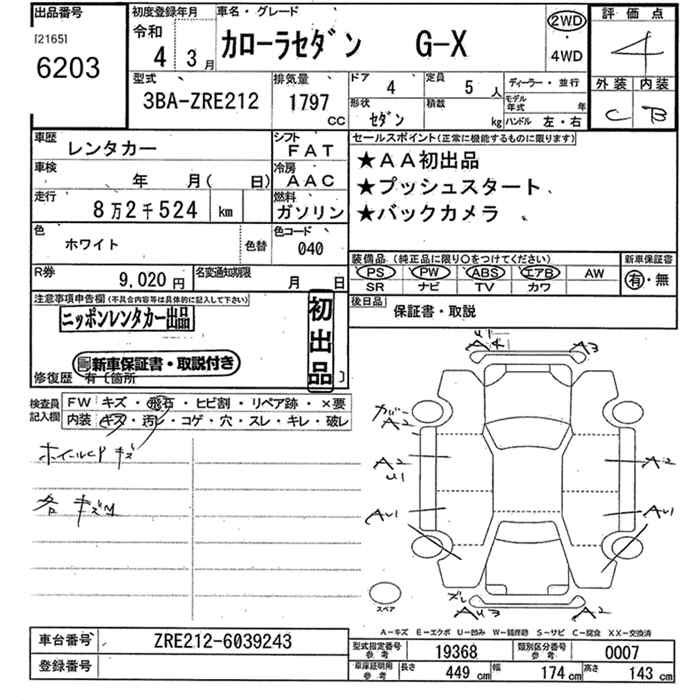 出品番号 初度登録年月 車名・グレード 評価点
[2165]
6203
令和
4 3月
カローラセダン G-X
2WD
・
4WD
4
外装 内装
C B
型式 排気量 ドア 定員 ディーラー・並行
3BA-ZRE212 1797 CC 4 5人
形状 積載 モデル年式 年
セダン kg ハンドル 左・右
車歴 シフト セールスポイント(正常に機能するものに限ります)
レンタカー FAT
★AA初出品
車検 冷房
年 月( 日) AAC
★プッシュスタート
走行 燃料
8万2千524 km ガソリン
★バックカメラ
色 色コード
ホワイト 色替 040
装備品(純正品に限り〇をつけてください) 新車保証書
R券 名変通知期限
9,020円 月 日
PS PW ABS エアB AW 有・無
SR ナビ TV カワ
注意事項申告欄(不具合内容等は具体的に記入して下さい) 後日品
保証書・取説
ニッポンレンタカー出品
初出品
新車保証書・取説付き
修復歴 有[箇所 ]
検査員記入欄 FW キズ・飛石・ヒビ割・リペア跡・×要
内装 キズ・汚レ・コゲ・穴・スレ・キレ・破レ
ホイールCP キズ
各 キズ
U1 A3
A2
A2 A2
U1
AU1 AU1
AU3 A2
スペア
A-キズ E-エクボ U-凹み W-補修跡 S-サビ C-腐食 XX-交換済
車台番号 ZRE212-6039243
型式指定番号参考 19368 類別区分番号参考 0007
登録番号
車庫証明用参考 長さ 449cm 幅 174cm 高さ 143cm